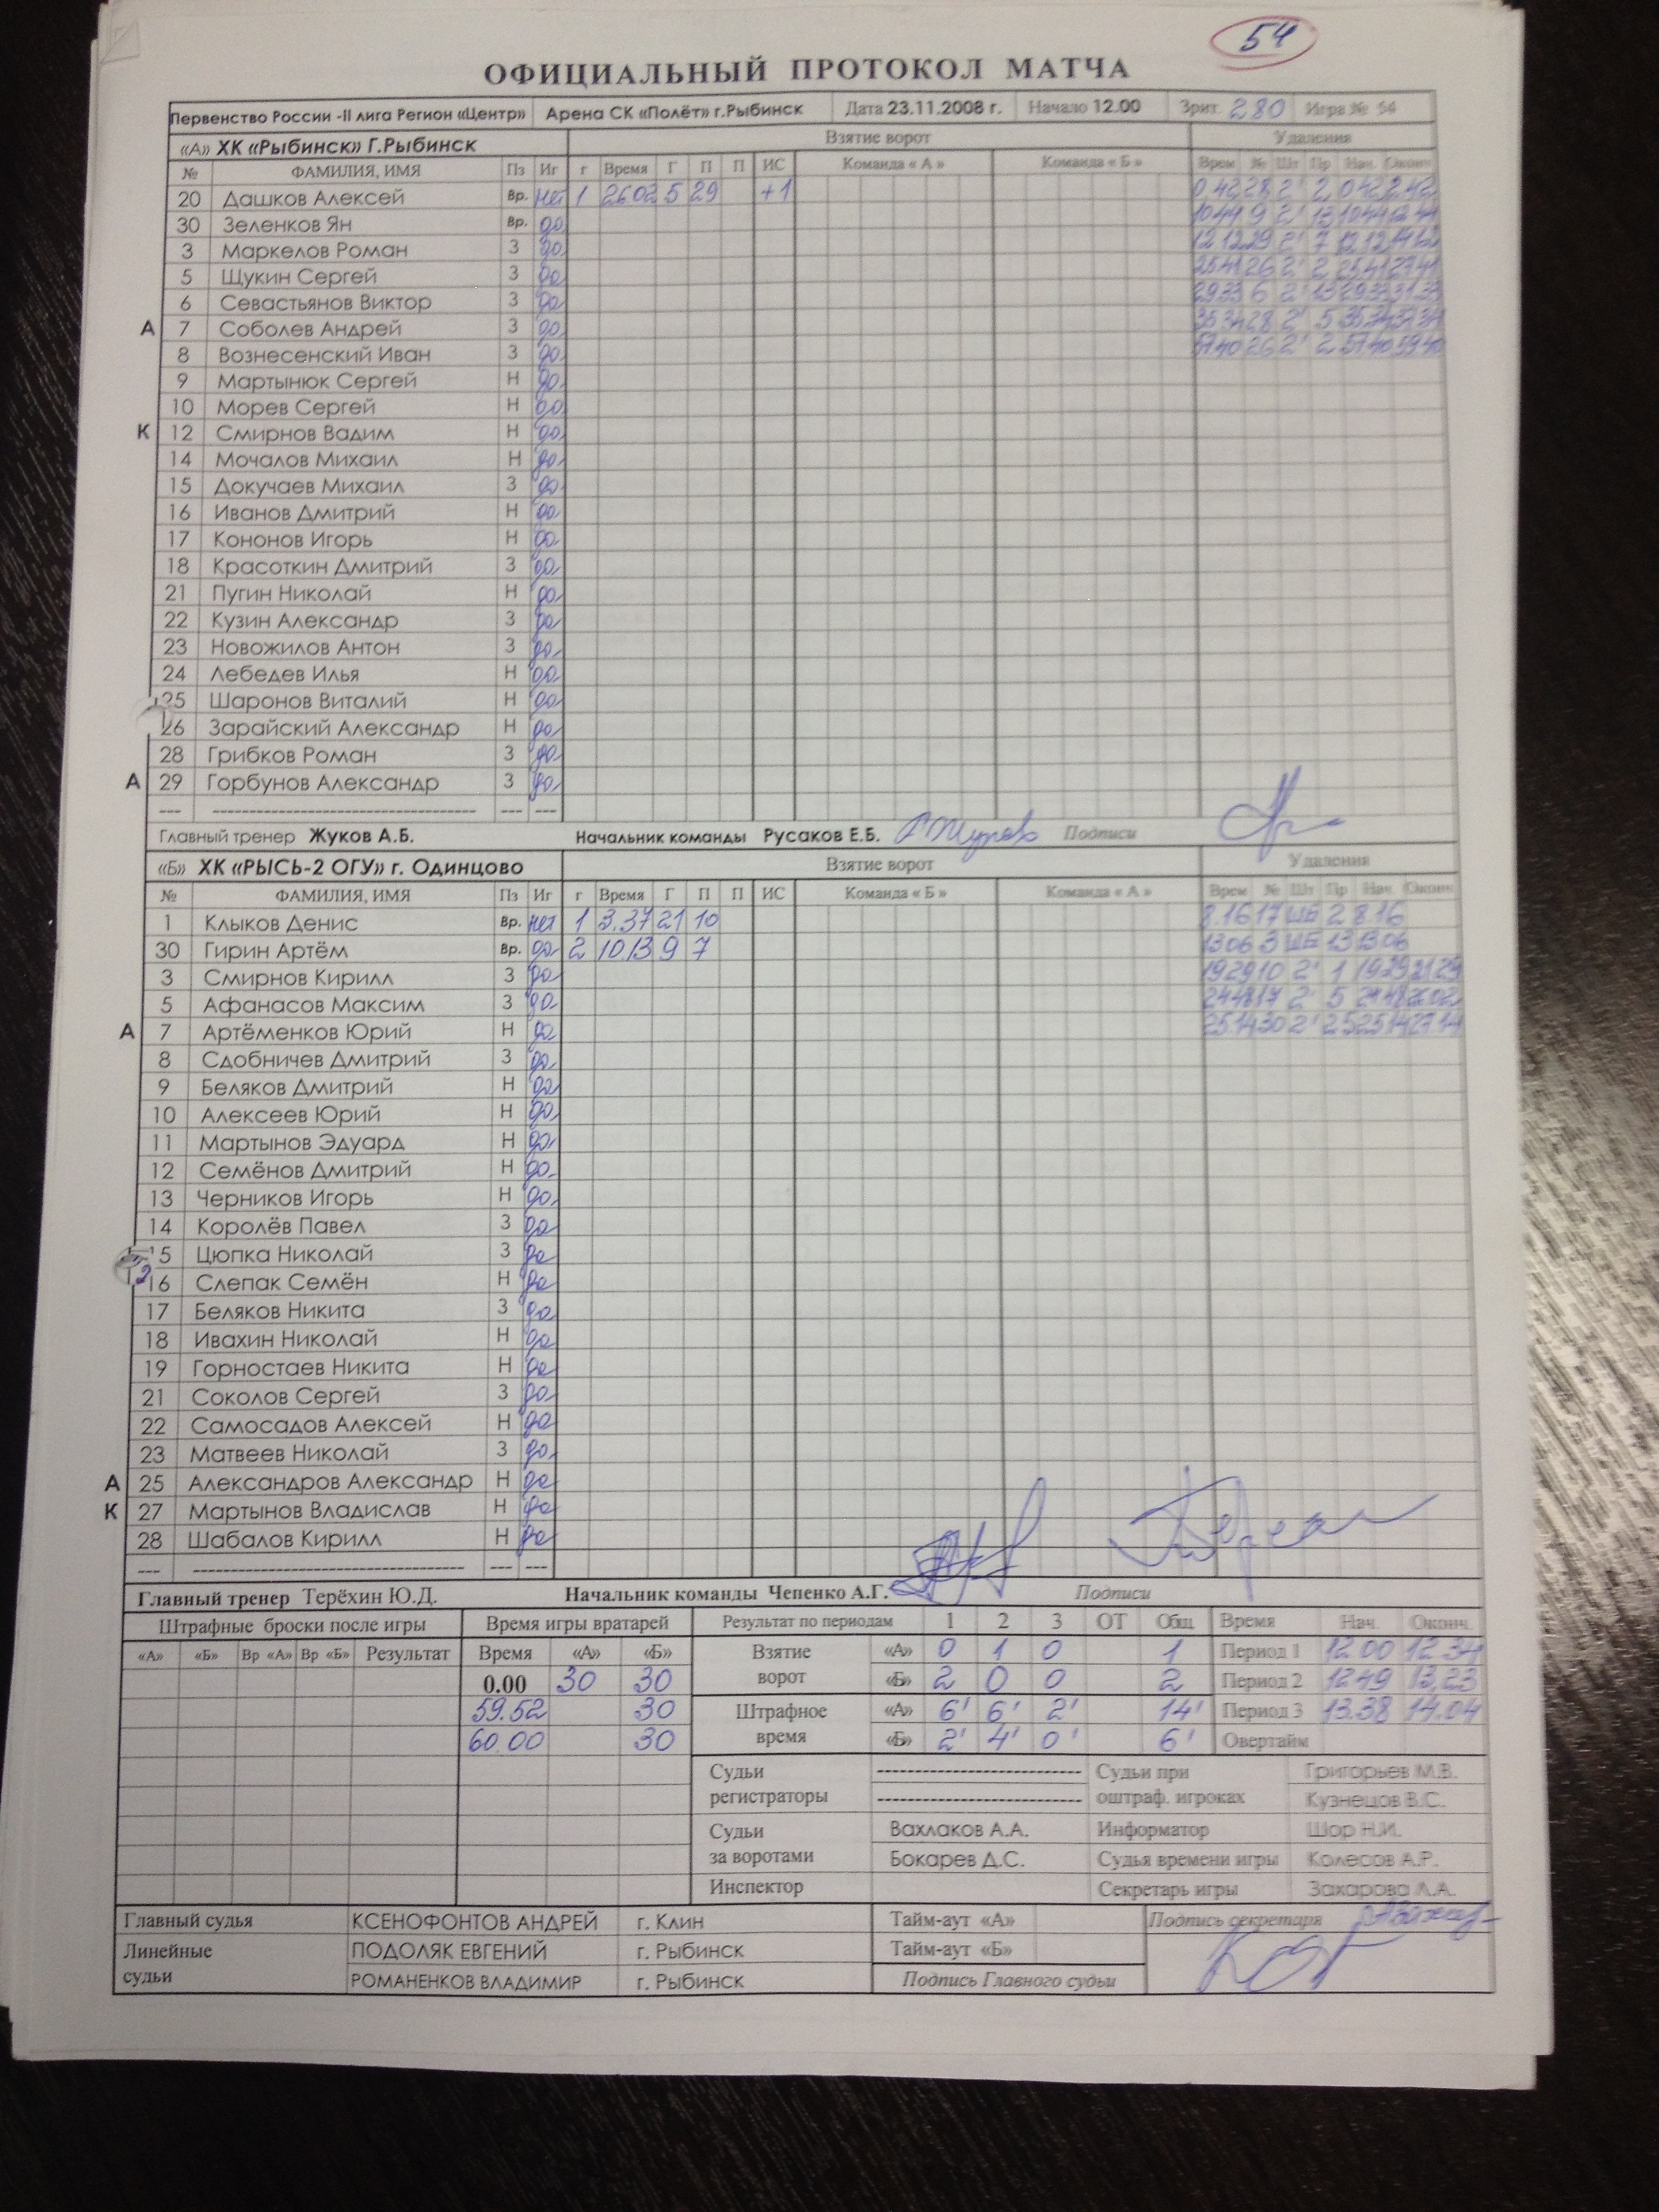 54
ОФИЦИАЛЬНЫЙ ПРОТОКОЛ МАТЧА
Первенство России -II лига Регион «Центр» Арена СК «Полёт» г.Рыбинск Дата 23.11.2008 г. Начало 12.00 Зрит. 280 Игра № 54
«А» ХК «Рыбинск» Г.Рыбинск Взятие ворот Удаления
№ ФАМИЛИЯ, ИМЯ Пз Иг г Время Г П П ИС Команда « А » Команда « Б » Врем № Шт Пр Нач. Оконч
20 Дашков Алексей Вр. нет 1 26.02 5 29 +1 0.42 28 2' 2 0.42 2.42
30 Зеленков Ян Вр. да 10.44 9 2' 13 10.44 12.44
3 Маркелов Роман З да 12.12 29 2' 7 12.12 14.12
5 Щукин Сергей З да 25.41 26 2' 2 25.41 27.41
6 Севастьянов Виктор З да 29.33 6 2' 13 29.33 31.33
А 7 Соболев Андрей З да 35.34 28 2' 5 35.34 37.34
8 Вознесенский Иван З да 57.40 26 2' 2 57.40 59.40
9 Мартынюк Сергей Н да
10 Морев Сергей Н да
К 12 Смирнов Вадим Н да
14 Мочалов Михаил Н да
15 Докучаев Михаил З да
16 Иванов Дмитрий Н да
17 Кононов Игорь Н да
18 Красоткин Дмитрий З да
21 Пугин Николай Н да
22 Кузин Александр З да
23 Новожилов Антон З да
24 Лебедев Илья Н да
25 Шаронов Виталий Н да
26 Зарайский Александр Н да
28 Грибков Роман З да
А 29 Горбунов Александр З да
Главный тренер Жуков А.Б. Начальник команды Русаков Е.Б. Подписи
«Б» ХК «РЫСЬ-2 ОГУ» г. Одинцово Взятие ворот Удаления
№ ФАМИЛИЯ, ИМЯ Пз Иг г Время Г П П ИС Команда « Б » Команда « А » Врем № Шт Пр Нач. Оконч.
1 Клыков Денис Вр. нет 1 3.37 21 10 8.16 17 ШБ 2 8.16
30 Гирин Артём Вр. да 2 10.13 9 7 13.06 3 ШБ 13 13.06
3 Смирнов Кирилл З да 19.29 10 2' 1 19.29 21.29
5 Афанасов Максим З да 24.48 17 2' 5 24.48 26.02
А 7 Артёменков Юрий Н да 25.14 30 2' 25 25.14 27.14
8 Сдобничев Дмитрий З да
9 Беляков Дмитрий Н да
10 Алексеев Юрий Н да
11 Мартынов Эдуард Н да
12 Семёнов Дмитрий Н да
13 Черников Игорь Н да
14 Королёв Павел З да
15 Цюпка Николай З да
16 Слепак Семён Н да
17 Беляков Никита З да
18 Ивахин Николай Н да
19 Горностаев Никита Н да
21 Соколов Сергей З да
22 Самосадов Алексей Н да
23 Матвеев Николай З да
А 25 Александров Александр Н да
К 27 Мартынов Владислав Н да
28 Шабалов Кирилл Н да
Главный тренер Терёхин Ю.Д. Начальник команды Чепенко А.Г. Подписи
Штрафные броски после игры Время игры вратарей Результат по периодам 1 2 3 ОТ Общ Время Нач. Оконч.
«А» «Б» Вр «А» Вр «Б» Результат Время «А» «Б» Взятие ворот «А» 0 1 0 1 Период 1 12.00 12.34
0.00 30 30 «Б» 2 0 0 2 Период 2 12.49 13.23
59.52 30 Штрафное время «А» 6' 6' 2' 14' Период 3 13.38 14.04
60.00 30 «Б» 2' 4' 0' 6' Овертайм
Судьи регистраторы Судьи при оштраф. игроках Григорьев М.В.
Кузнецов В.С.
Судьи за воротами Вахлаков А.А. Информатор Шор Н.И.
Бокарев Д.С. Судья времени игры Колесов А.Р.
Инспектор Секретарь игры Захарова Л.А.
Главный судья КСЕНОФОНТОВ АНДРЕЙ г. Клин Тайм-аут «А» Подпись секретаря
Линейные судьи ПОДОЛЯК ЕВГЕНИЙ г. Рыбинск Тайм-аут «Б»
РОМАНЕНКОВ ВЛАДИМИР г. Рыбинск Подпись Главного судьи